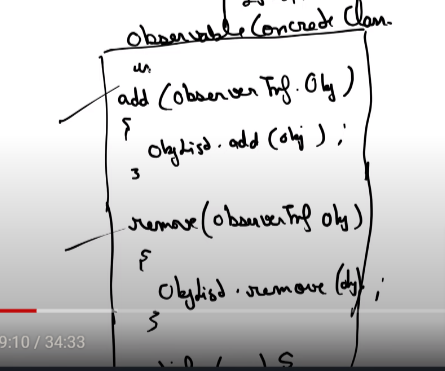 Observable Concrete Class
add (Observer Inf. Obj)
{
ObjList.add (obj);
}
remove (Observer Inf Obj)
{
ObjList.remove (obj);
}
9:10 / 34:33